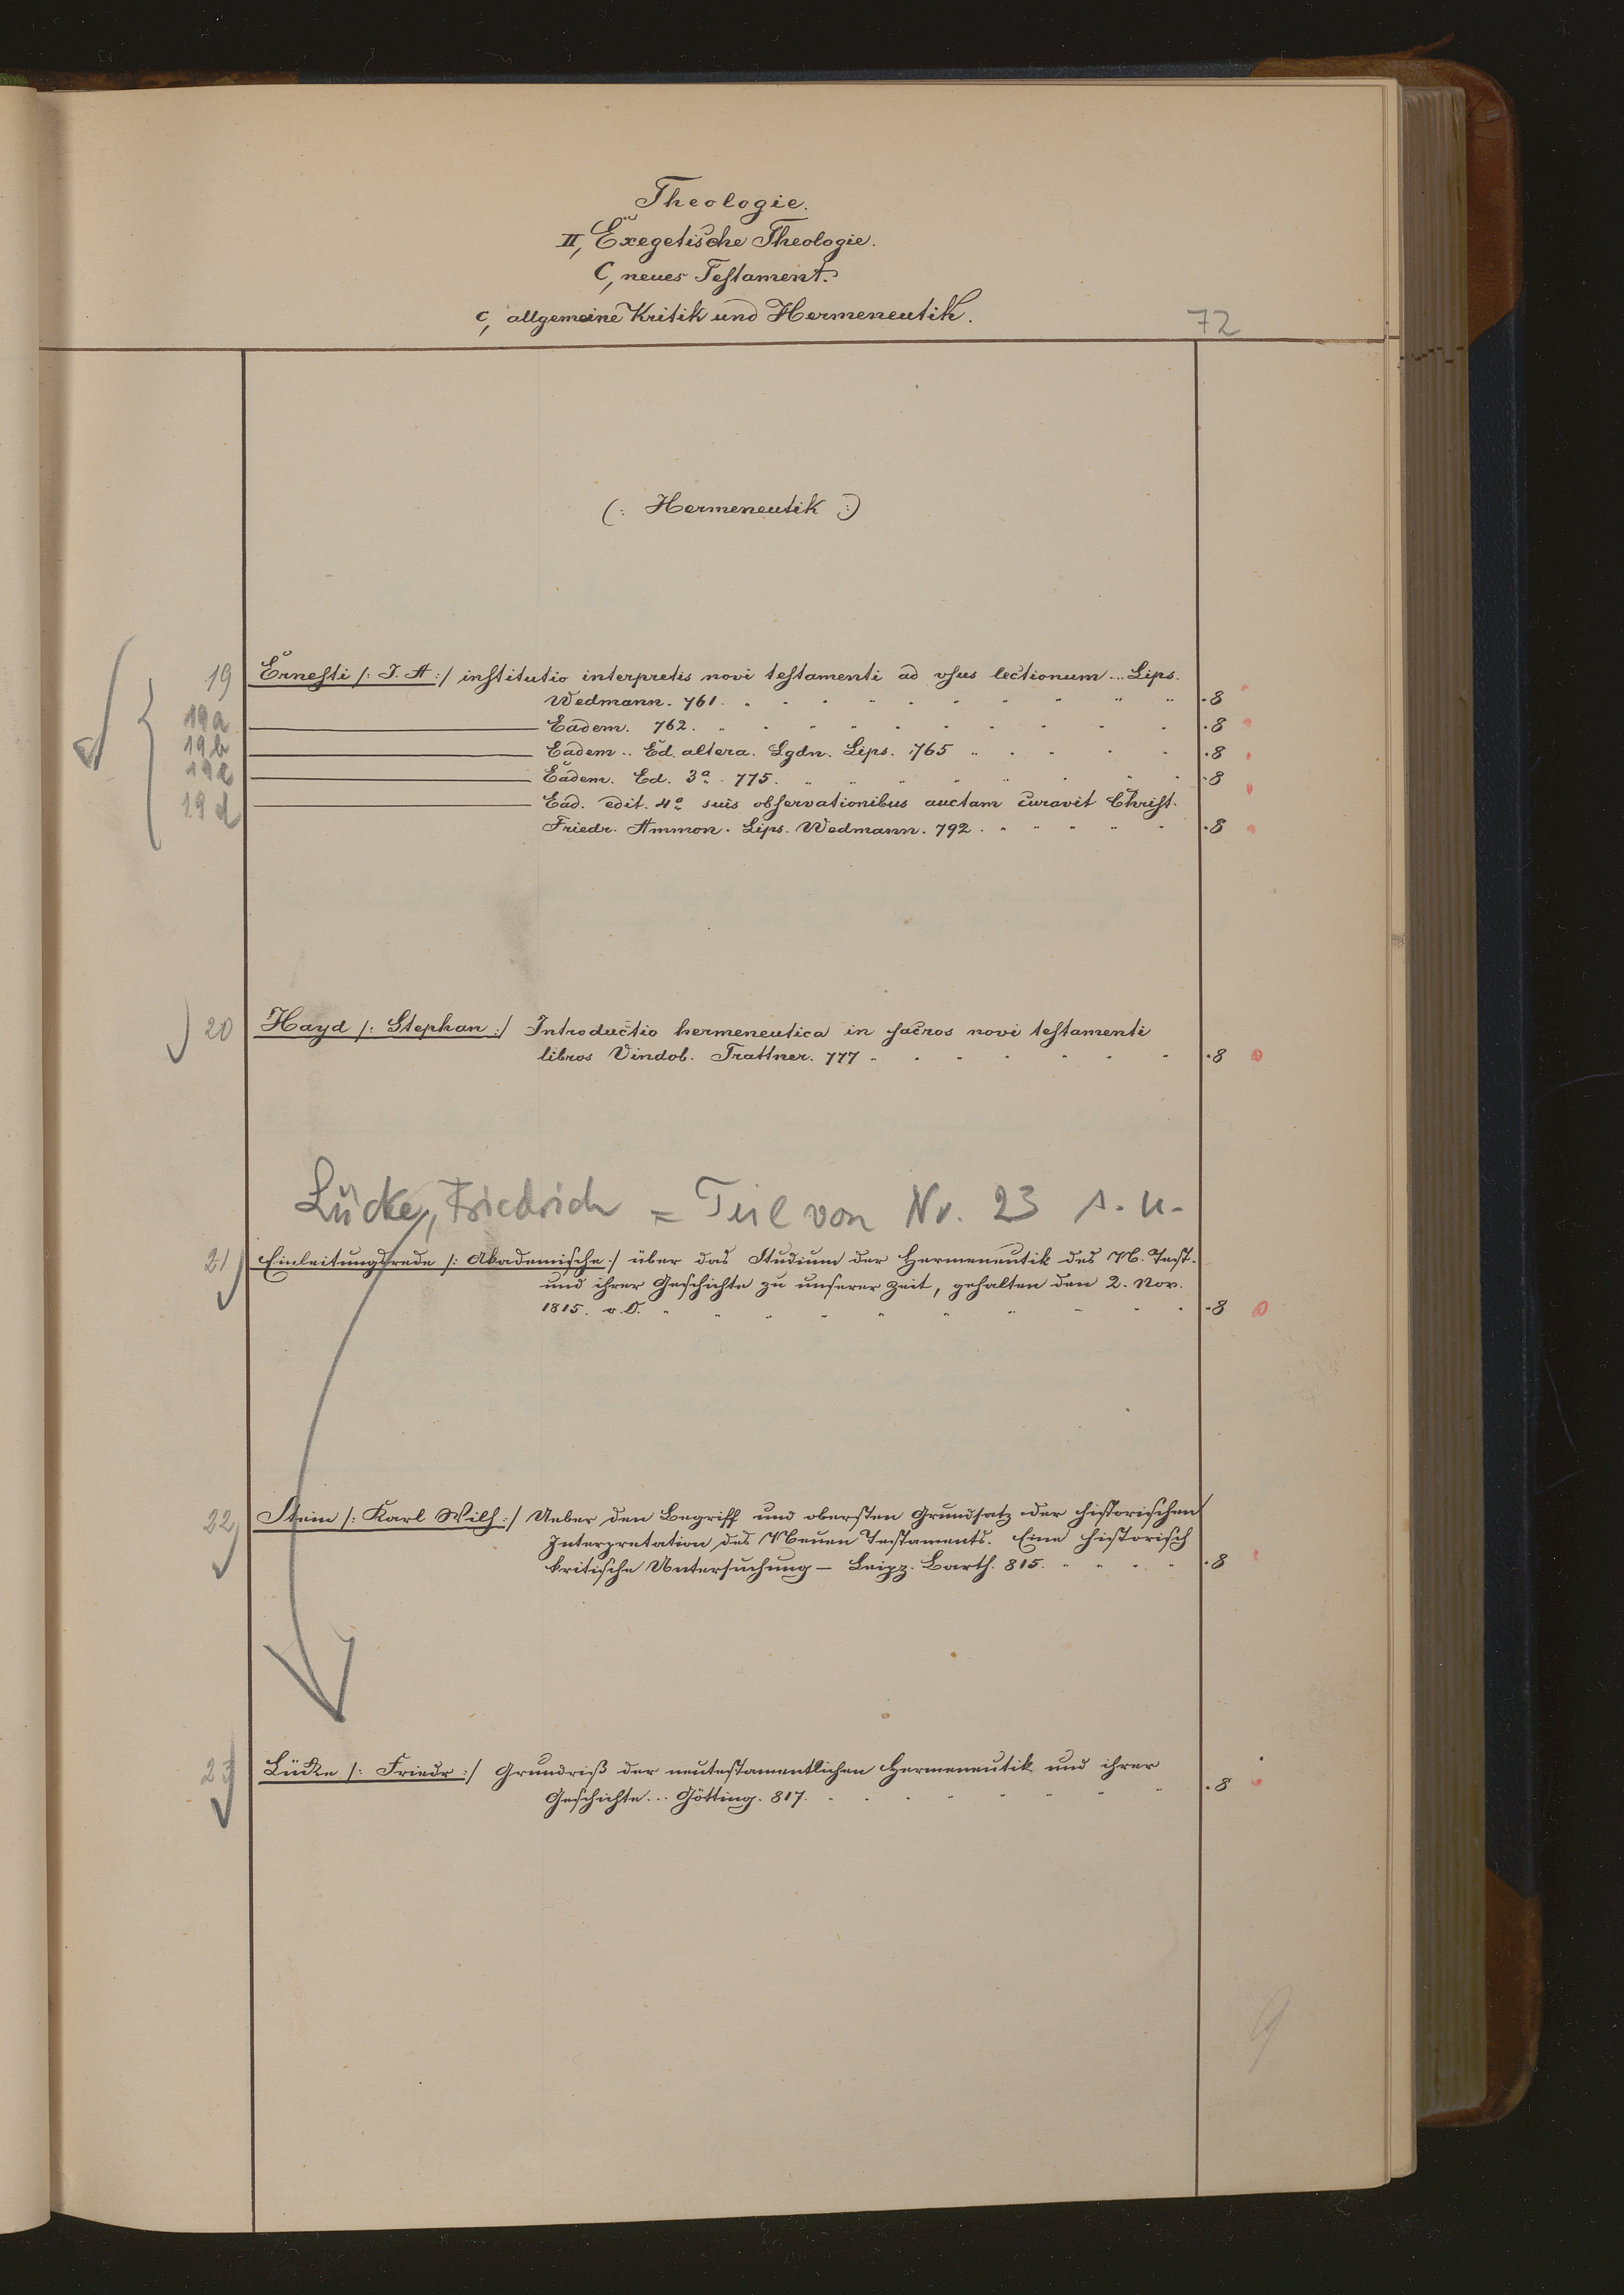 Theologie.
II, Exegetische Theologie.
C, neues Testament.
c, allgemeine Kritik und Hermeneutik.
72
(: Hermeneutik :)
19 Ernesti /: J. A :/ institutio interpretis novi testamenti ad usus lectionum... Lips.
Wedmann. 761. 8
19a Eadem. 762. 8
19b Eadem.. Ed. altera. Lgdn. Lips. 765 8
19c Eadem. Ed. 3a. 775. 8
19d Ead. edit. 4a suis observationibus auctam curavit Christ.
Friedr. Ammon. Lips. Wedmann. 792. 8
20 Hayd /: Stephan :/ Introductio hermeneutica in sacros novi testamenti
libros Vindob. Trattner. 777 8
Lücke, Friedrich = Teil von Nr. 23 s. u.
21 Einleitungsrede /: Akademische :/ über das Studium der Hermeneutik des N. Test.
und ihrer Geschichte zu unserer Zeit, gehalten den 2. Nov.
1815. o. O. 8
22 Stein /: Karl Wilh :/ Ueber den Begriff und obersten Grundsatz der historischen
Interpretation des Neuen Testaments. Eine historisch
kritische Untersuchung – Leipz. Barth. 815. 8
23 Lücke /: Friedr :/ Grundriß der neutestamentlichen Hermeneutik und ihrer
Geschichte... Götting. 817. 8
9